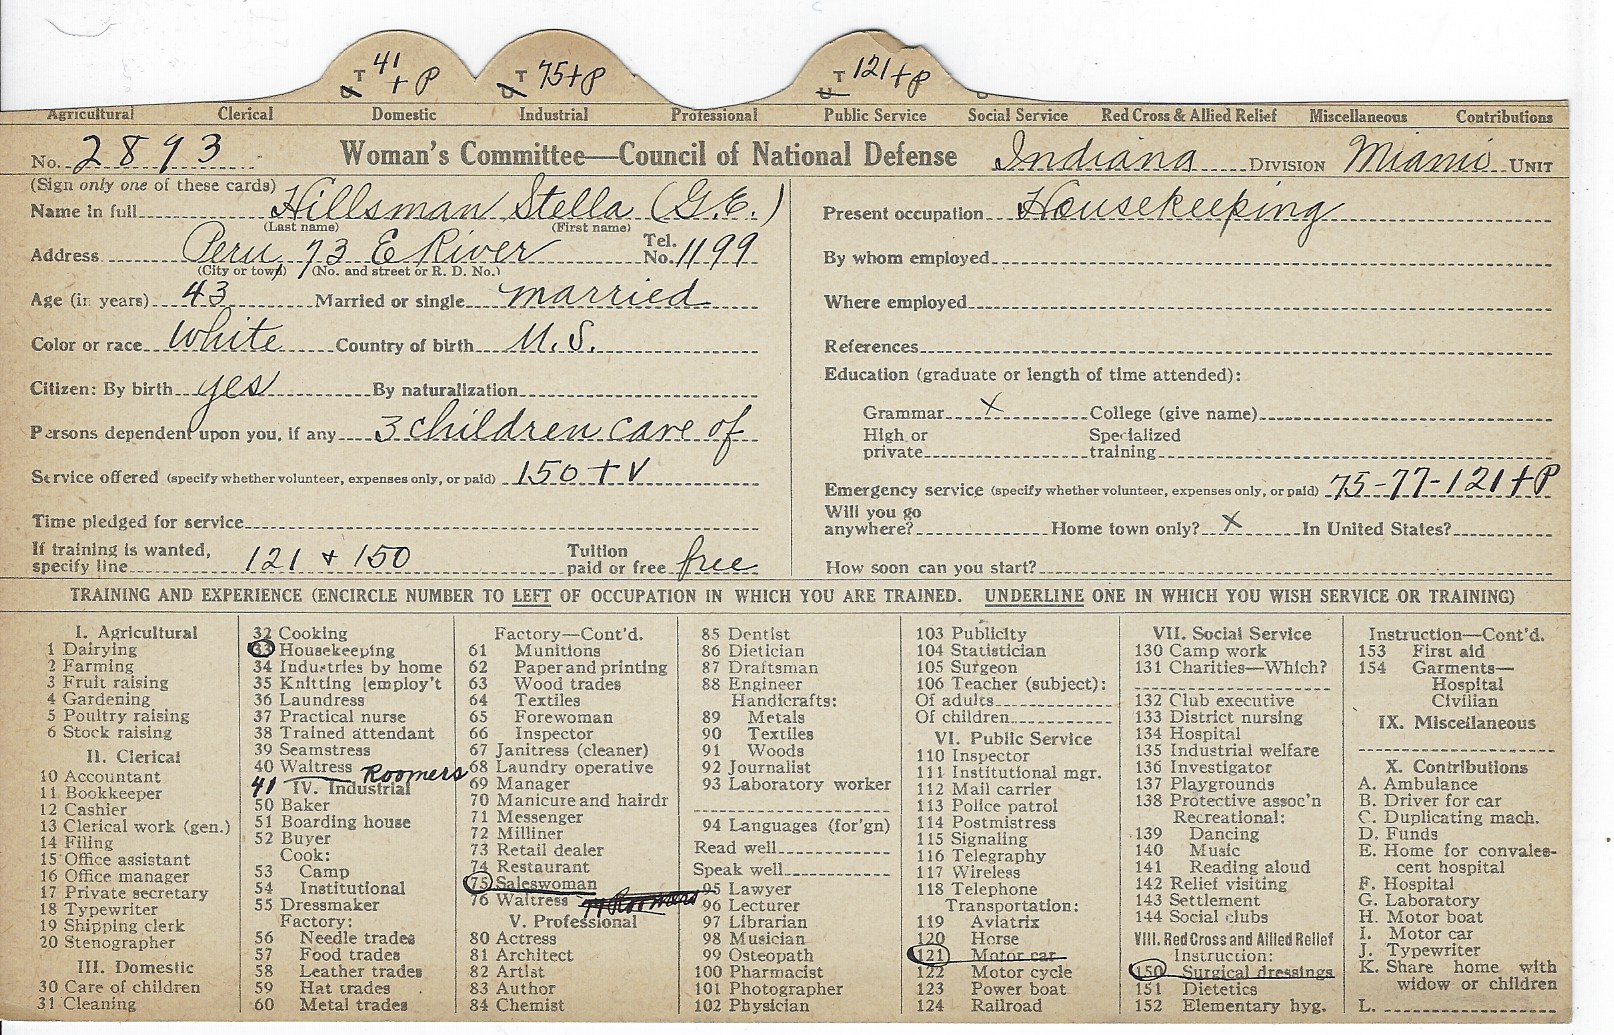 T 41 + P
T 75+P
T 121+P
Agricultural Clerical Domestic Industrial Professional Public Service Social Service Red Cross & Allied Relief Miscellaneous Contributions
No. 2893 Woman's Committee—Council of National Defense Indiana DIVISION Miami UNIT
(Sign only one of these cards)
Name in full Hillsman Stella (G.E.)
(Last name) (First name)
Address Peru, 73 E River Tel. No. 1199
(City or town) (No. and street or R. D. No.)
Age (in years) 43 Married or single married
Color or race White Country of birth U.S.
Citizen: By birth yes By naturalization
Persons dependent upon you, if any 3 children care of
Service offered (specify whether volunteer, expenses only, or paid) 150 + V
Time pledged for service
If training is wanted, specify line 121 + 150 Tuition paid or free free
Present occupation Housekeeping
By whom employed
Where employed
References
Education (graduate or length of time attended):
Grammar X College (give name)
High or private Specialized training
Emergency service (specify whether volunteer, expenses only, or paid) 75-77-121+P
Will you go anywhere? Home town only? X In United States?
How soon can you start?
TRAINING AND EXPERIENCE (ENCIRCLE NUMBER TO LEFT OF OCCUPATION IN WHICH YOU ARE TRAINED. UNDERLINE ONE IN WHICH YOU WISH SERVICE OR TRAINING)
I. Agricultural
1 Dairying
2 Farming
3 Fruit raising
4 Gardening
5 Poultry raising
6 Stock raising
II. Clerical
10 Accountant
11 Bookkeeper
12 Cashier
13 Clerical work (gen.)
14 Filing
15 Office assistant
16 Office manager
17 Private secretary
18 Typewriter
19 Shipping clerk
20 Stenographer
III. Domestic
30 Care of children
31 Cleaning
32 Cooking
33 Housekeeping
34 Industries by home
35 Knitting [employ't
36 Laundress
37 Practical nurse
38 Trained attendant
39 Seamstress
40 Waitress
41 Roomers
IV. Industrial
50 Baker
51 Boarding house
52 Buyer
Cook:
53 Camp
54 Institutional
55 Dressmaker
Factory:
56 Needle trades
57 Food trades
58 Leather trades
59 Hat trades
60 Metal trades
Factory—Cont'd.
61 Munitions
62 Paper and printing
63 Wood trades
64 Textiles
65 Forewoman
66 Inspector
67 Janitress (cleaner)
68 Laundry operative
69 Manager
70 Manicure and hairdr
71 Messenger
72 Milliner
73 Retail dealer
74 Restaurant
75 Saleswoman
76 Waitress 77 Roomers
V. Professional
80 Actress
81 Architect
82 Artist
83 Author
84 Chemist
85 Dentist
86 Dietician
87 Draftsman
88 Engineer
Handicrafts:
89 Metals
90 Textiles
91 Woods
92 Journalist
93 Laboratory worker
94 Languages (for'gn)
Read well
Speak well
95 Lawyer
96 Lecturer
97 Librarian
98 Musician
99 Osteopath
100 Pharmacist
101 Photographer
102 Physician
103 Publicity
104 Statistician
105 Surgeon
106 Teacher (subject):
Of adults
Of children
VI. Public Service
110 Inspector
111 Institutional mgr.
112 Mail carrier
113 Police patrol
114 Postmistress
115 Signaling
116 Telegraphy
117 Wireless
118 Telephone
Transportation:
119 Aviatrix
120 Horse
121 Motor car
122 Motor cycle
123 Power boat
124 Railroad
VII. Social Service
130 Camp work
131 Charities—Which?
132 Club executive
133 District nursing
134 Hospital
135 Industrial welfare
136 Investigator
137 Playgrounds
138 Protective assoc'n
Recreational:
139 Dancing
140 Music
141 Reading aloud
142 Relief visiting
143 Settlement
144 Social clubs
VIII. Red Cross and Allied Relief
Instruction:
150 Surgical dressings
151 Dietetics
152 Elementary hyg.
Instruction—Cont'd.
153 First aid
154 Garments—
Hospital
Civilian
IX. Miscellaneous
X. Contributions
A. Ambulance
B. Driver for car
C. Duplicating mach.
D. Funds
E. Home for convales-
cent hospital
F. Hospital
G. Laboratory
H. Motor boat
I. Motor car
J. Typewriter
K. Share home with
widow or children
L.